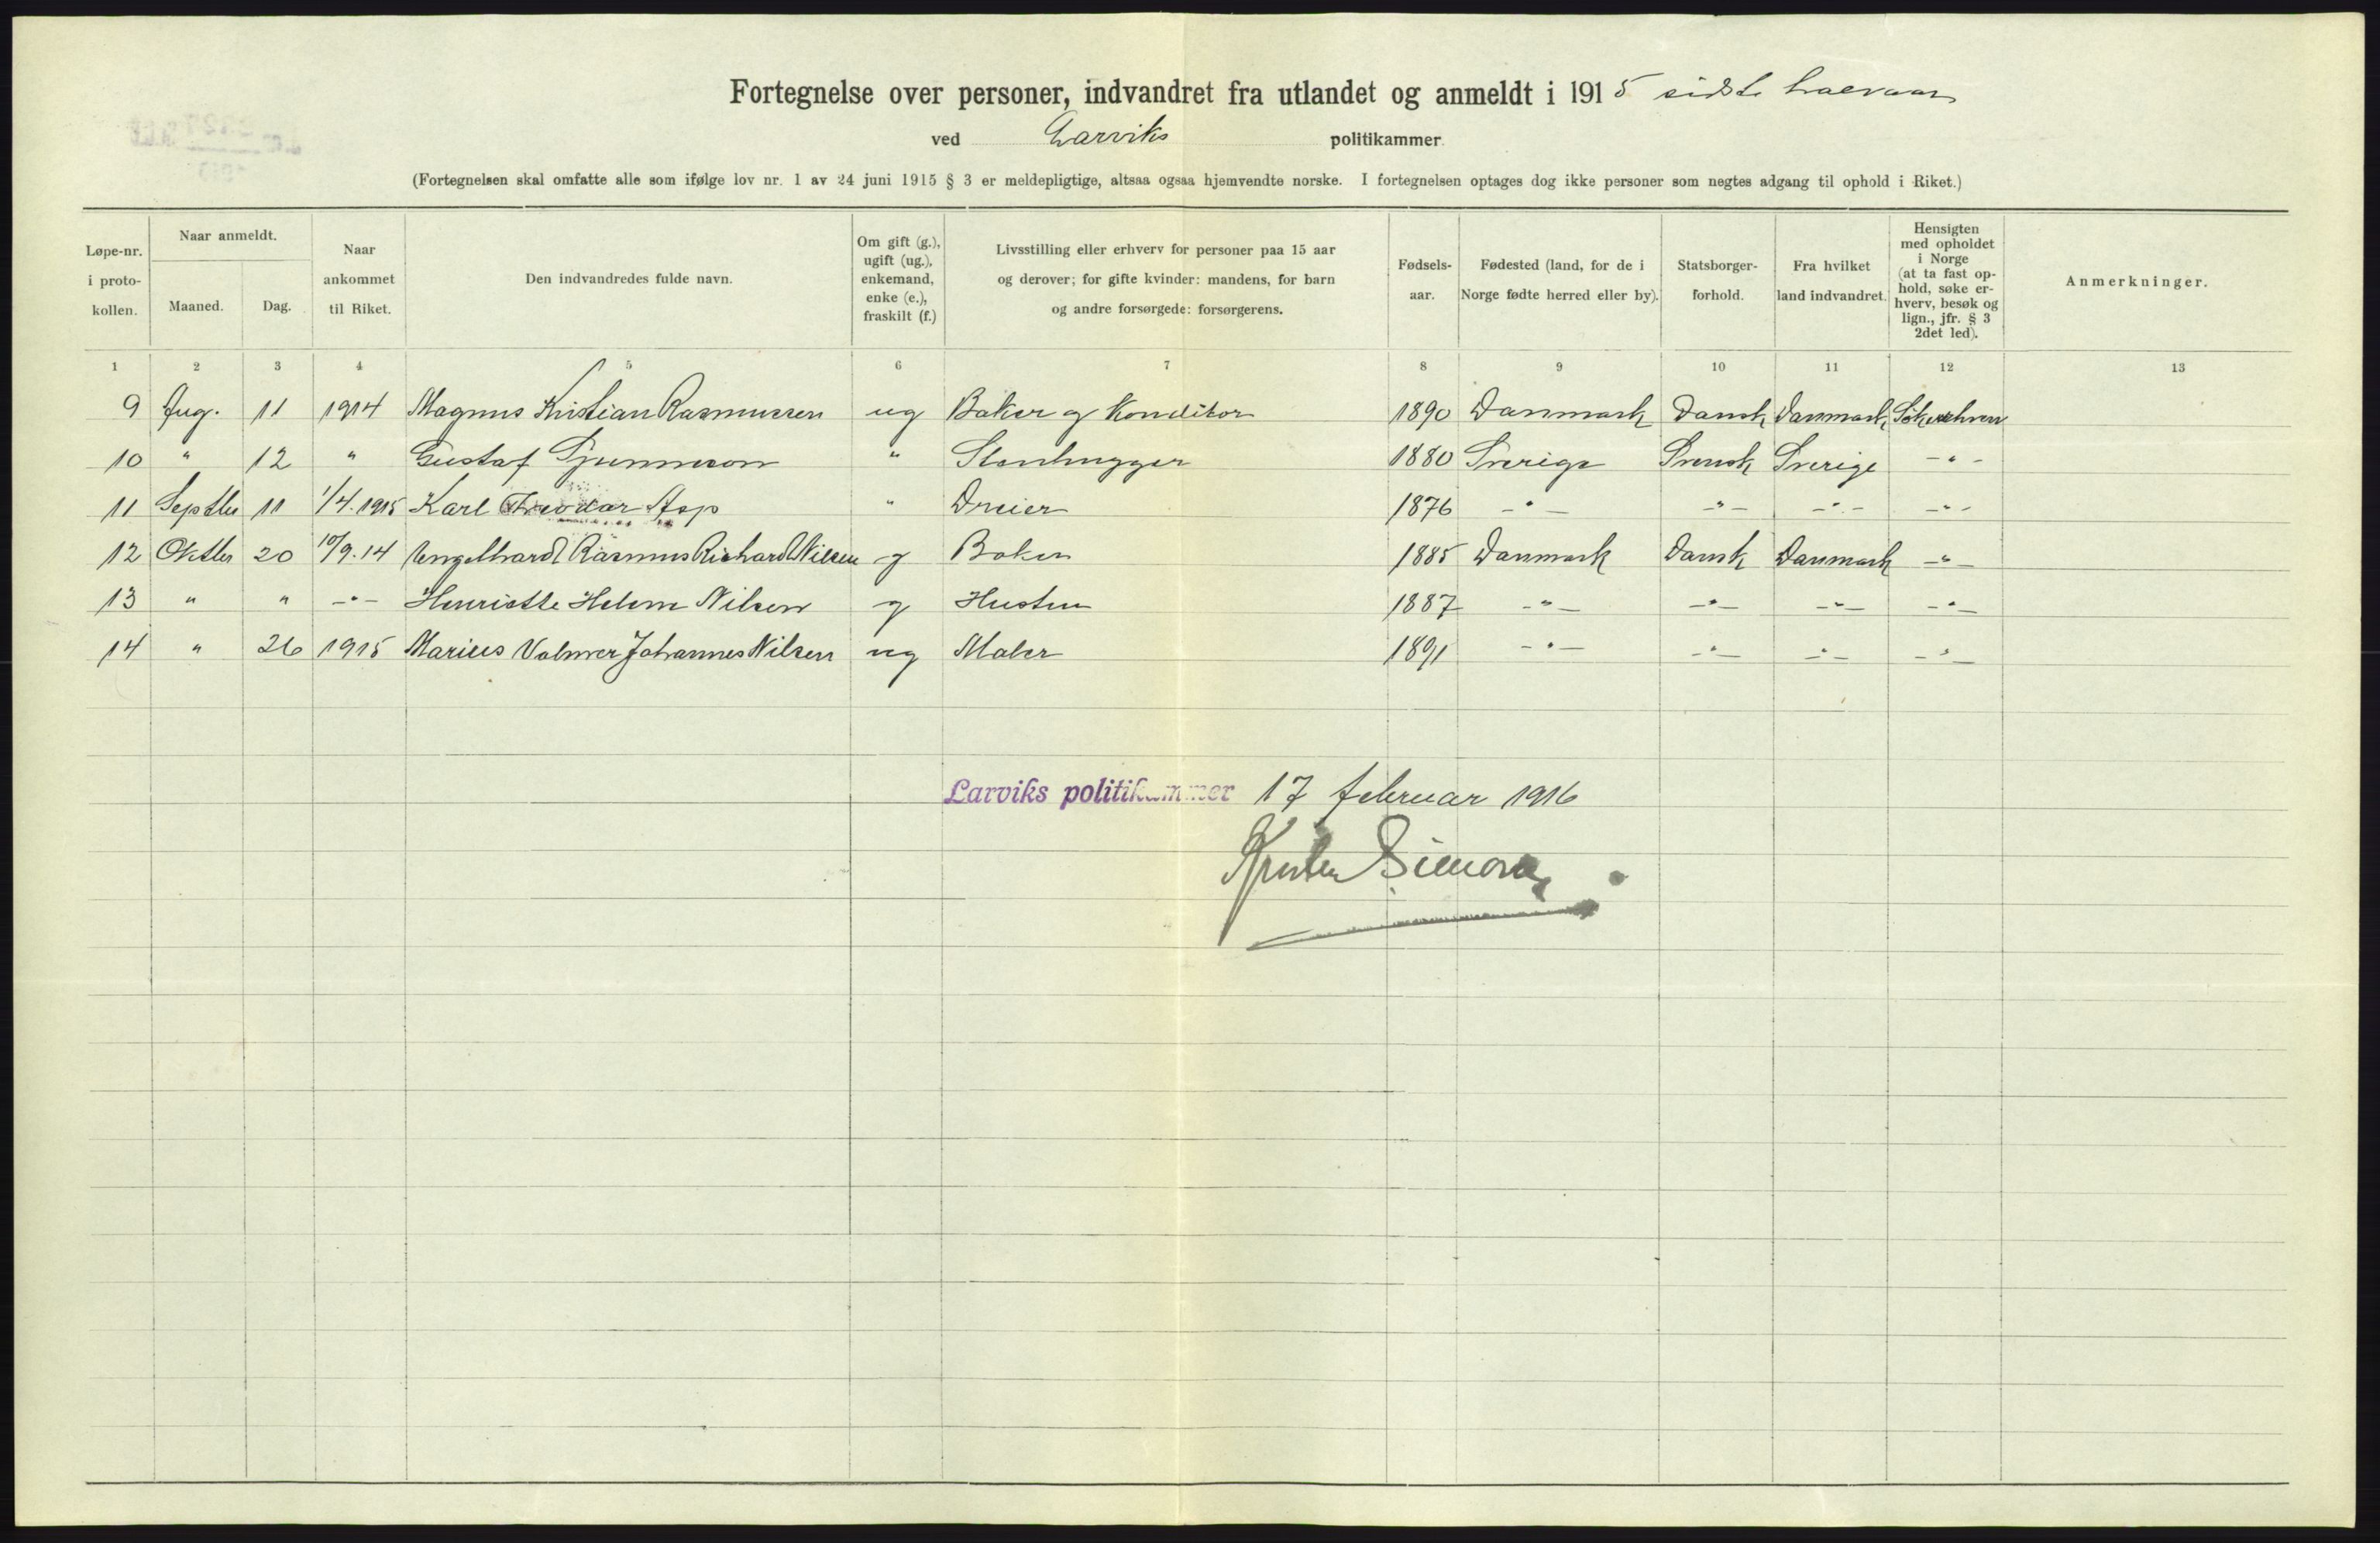 Fortegnelse over personer, indvandret fra utlandet og anmeldt i 1915 sidste halvaar
ved Larviks politikammer.
(Fortegnelsen skal omfatte alle som ifølge lov nr. 1 av 24 juni 1915 § 3 er meldepligtige, altsaa ogsaa hjemvendte norske. I fortegnelsen optages dog ikke personer som negtes adgang til ophold i Riket.)
Løpe-nr. i proto- kollen. Naar anmeldt. Maaned. Dag. Naar ankommet til Riket. Den indvandredes fulde navn. Om gift (g.), ugift (ug.), enkemand, enke (e.), fraskilt (f.) Livsstilling eller erhverv for personer paa 15 aar og derover; for gifte kvinder: mandens, for barn og andre forsørgede: forsørgerens. Fødsels- aar. Fødested (land, for de i Norge fødte herred eller by). Statsborger- forhold. Fra hvilket land indvandret. Hensigten med opholdet i Norge (at ta fast op- hold, søke er- hverv, besøk og lign., jfr. § 3 2det led). Anmerkninger.
1 2 3 4 5 6 7 8 9 10 11 12 13
9 Aug. 11 1914 Magnus Kristian Rasmussen ug Baker og Konditor 1890 Danmark Dansk Danmark Søke erhverv
10 " 12 " Gustaf " Stenhugger 1880 Sverige Svensk Sverige -"-
11 Septbr 11 1/4.1915 Karl Asp " Dreier 1876 -"- -"- -"- -"-
12 Oktbr 20 10/9.14 Engelhardt Rasmus Richard Nilsen g Baker 1885 Danmark Dansk Danmark -"-
13 " " -"- Henriette Helene Nilsen g Hustru 1887 -"- -"- -"- -"-
14 " 26 1915 Marius Valmer Johannes Nilsen ug Maler 1891 -"- -"- -"- -"-
Larviks politikammer 17 februar 1916